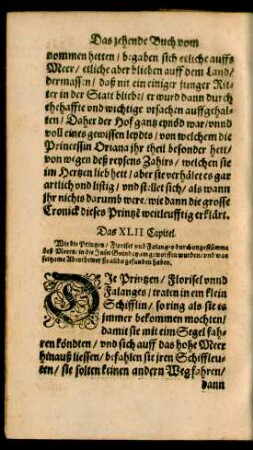 Das zehende Buch vom
nommen hetten / begaben sich etliche auffs
Meer / etliche aber blieben auff dem Land /
dermassen / daß nit ein einiger junger Rit-
ter in der Statt bliebe / er wurd dann durch
ehehaffte vnd wichtige vrsachen auffgehal-
ten / Daher der Hof gantz eynöd war / vnnd
voll eines gewissen leydts / von welchem die
Princessin Oriana jhr theil besonder hett /
von wegen deß reysens Zahirs / welchen sie
im Hertzen lieb hett / aber sie verhälet es gar
artlich vnd listig / vnd stellet sich / als wann
jhr nichts darumb were / wie dann die grosse
Cronick dieses Printzē weitleufftig erklärt.
Das XLII Capitel.
Wie die Printzen / Florisel vnd Falanges durch vngestümme
deß Meers / in die Insel Guindaya geworffen wurden / vnd was
seltzame Abenthewer sie allda gefunden haben.
DIe Printzen / Florisel vnnd
Falanges / traten in ein klein
Schifflin / so ring als sie es
jmmer bekommen mochten /
damit sie mit eim Segel fah-
ren köndten / vnd sich auff das hohe Meer
hinauß liessen / befahlen sie jren Schiffleu-
ten / sie solten keinen andern Weg fahren /
dann